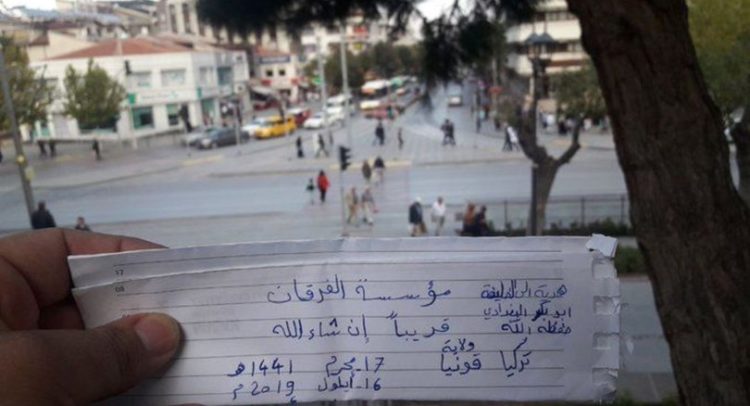 هدية الى الخليفة
ابو بكر البغدادي
حفظه الله
مؤسسة الفرقان
قريباً إن شاء الله
ولاية
تركيا قونيا
17 - محرم 1441 هـ
16 - أيلول 2019 م
17
08